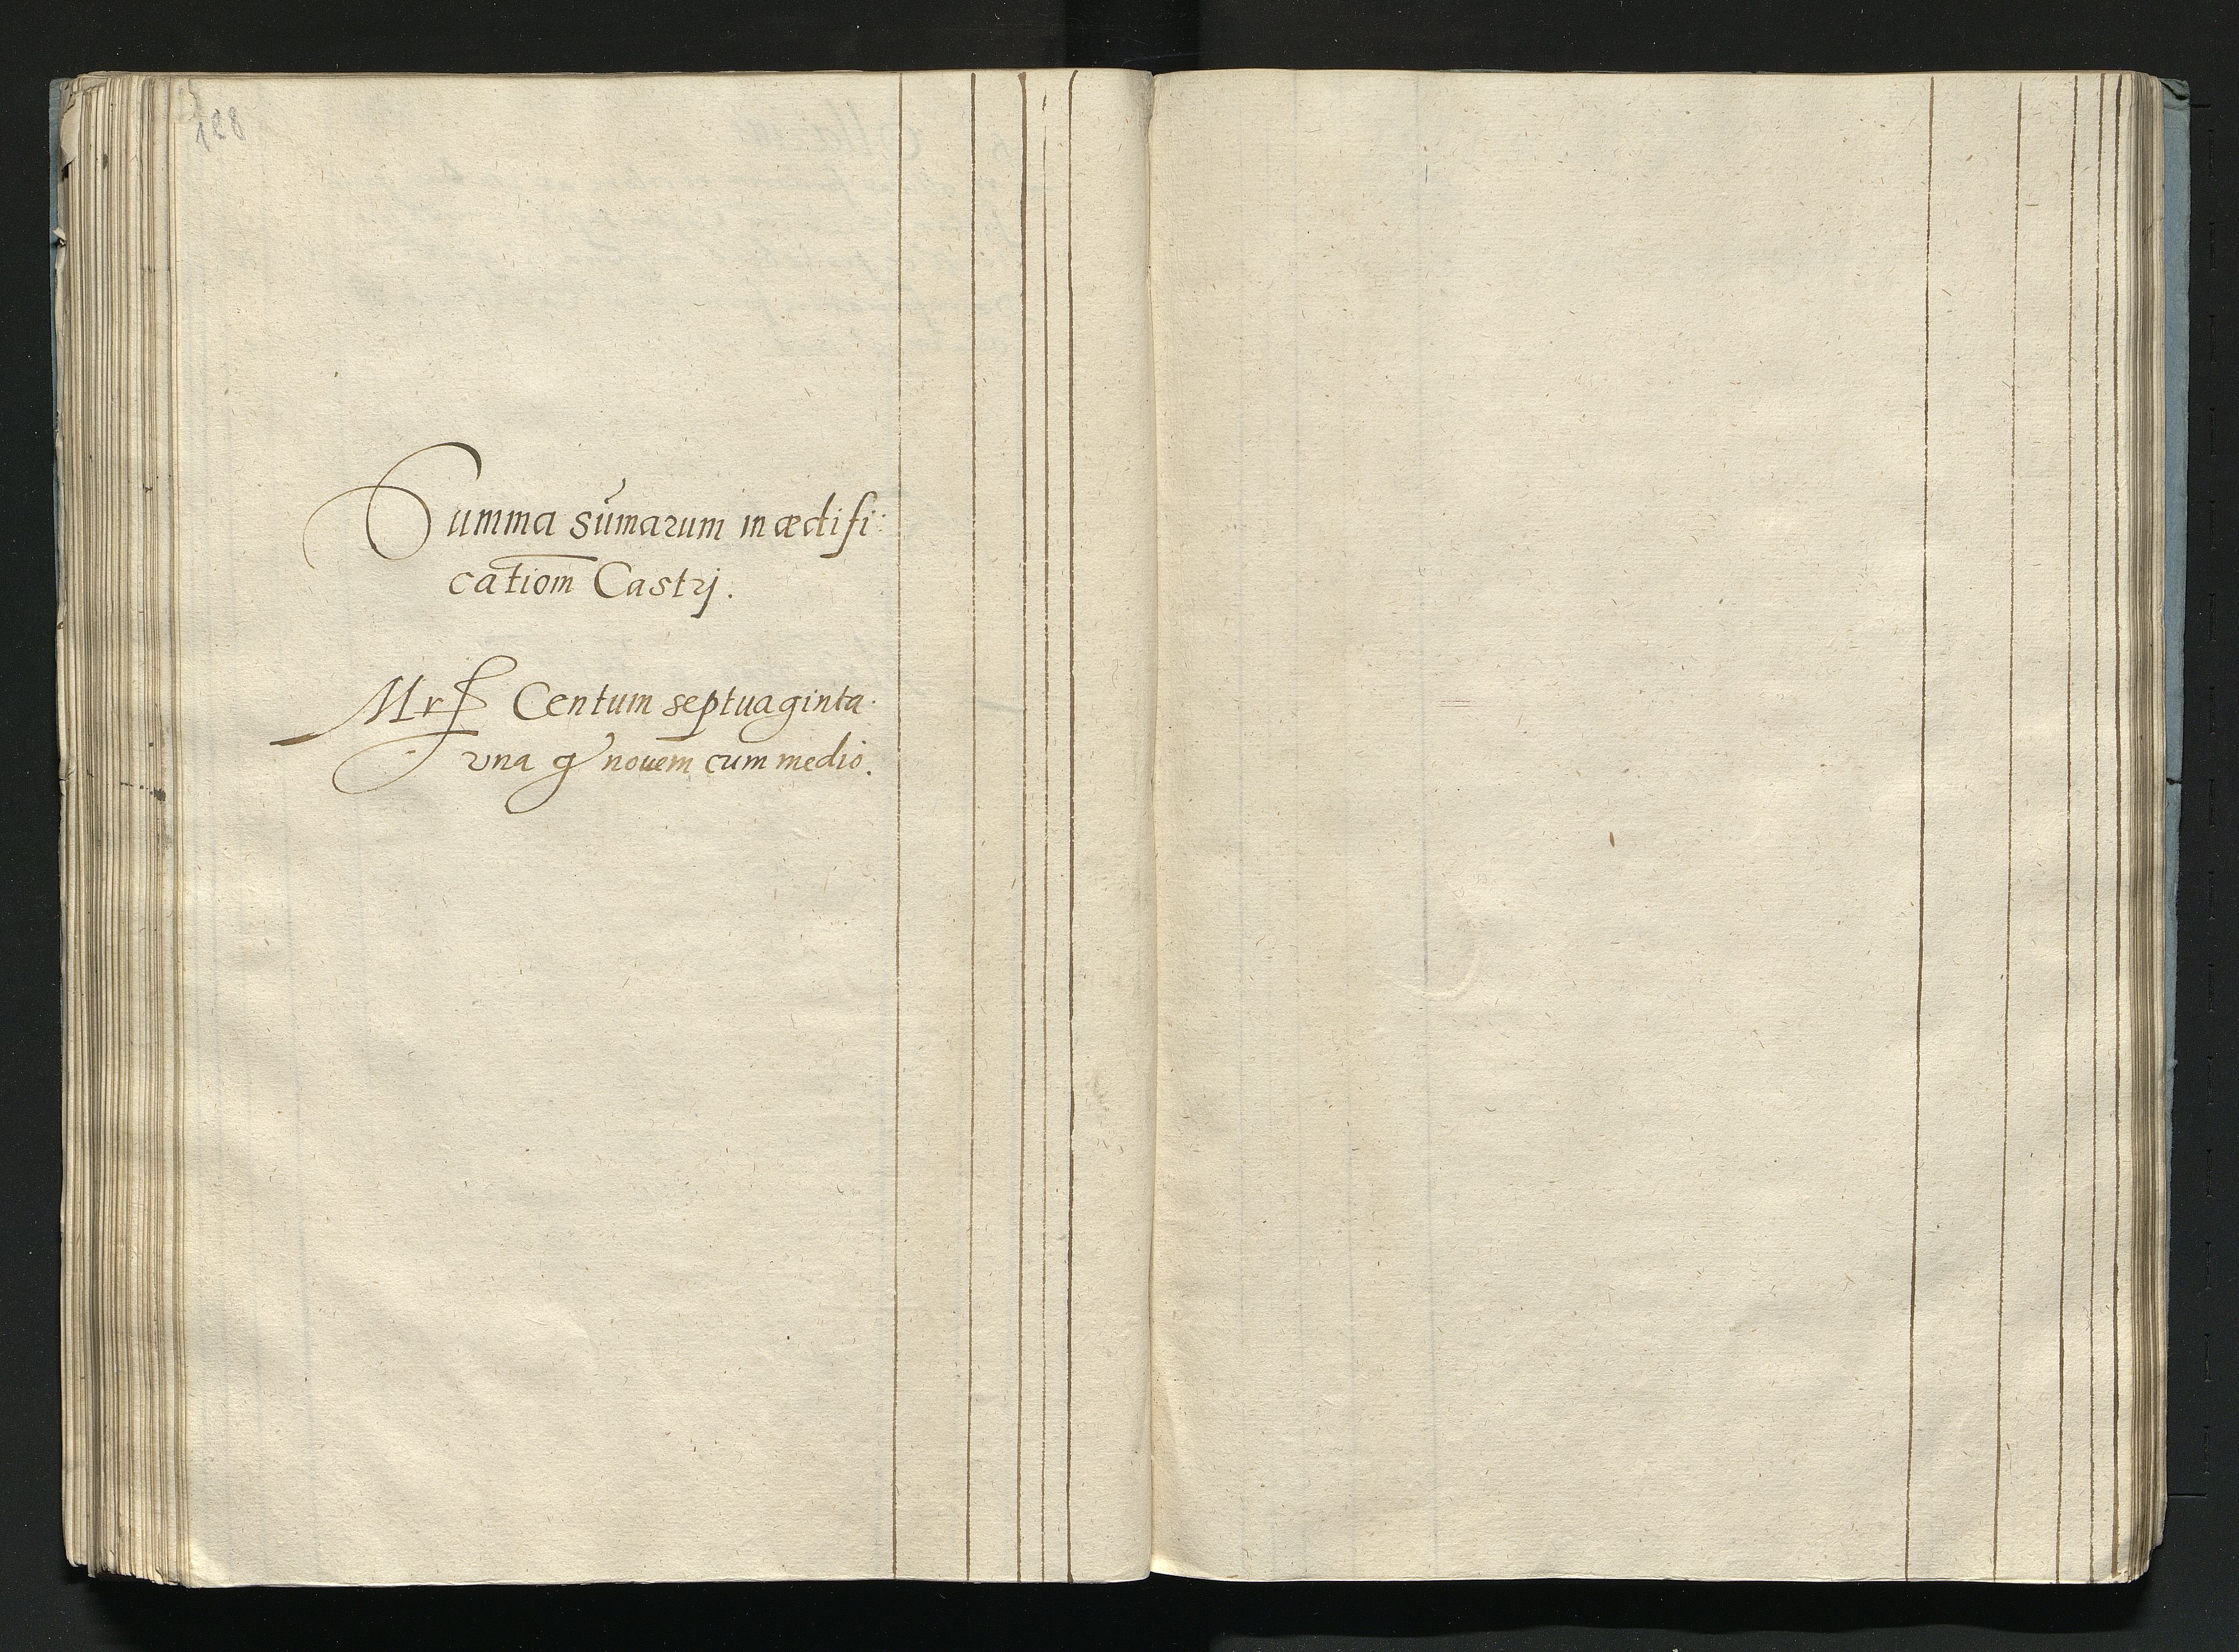 128
Summa sum̄arum in ædifi:
cation̄ Castrj.
Mrß Centum septuaginta
vna g̃ nouem cum medio.